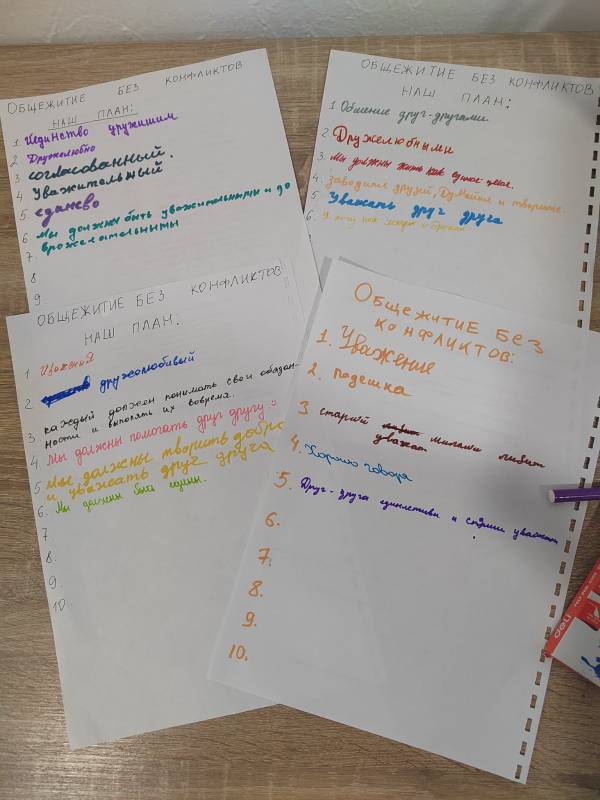 ОБЩЕЖИТИЕ БЕЗ КОНФЛИКТОВ
НАШ ПЛАН:
1. Иединство дружишим
2 Дружелюбно
3 согласованный.
4 Уважительный.
5. единсво
6. Мы должны быть уважительными и до
7. брожелательными
8
9.
ОБЩЕЖИТИЕ БЕЗ КОНФЛИКТОВ
НАШ ПЛАН:
1 Общение друг-другами.
2 Дружелюбными
3. Мы должны жить как единое целое.
4. Заводите друзей, Думайте и творите.
5 Уважать друг друга
6.
ОБЩЕЖИТИЕ БЕЗ КОНФЛИКТОВ
НАШ ПЛАН:
1 Уважения
2 дружолюбивый
3. каждый должен понимать свои обязан-
ности и выполять их вовремя.
4. Мы должны помогать друг другу :
5 Мы должны творить добро
и уважать друг друга
6. Мы должны быть едины.
7
8.
9.
10.
ОБЩЕЖИТИЕ БЕЗ
КОНФЛИКТОВ:
1. Уважение
2. подешка
3 старший милаши любит
уважат
4. Хорошо говора
5. Друг-друга и уважат
6.
7.
8.
9.
10.
deli